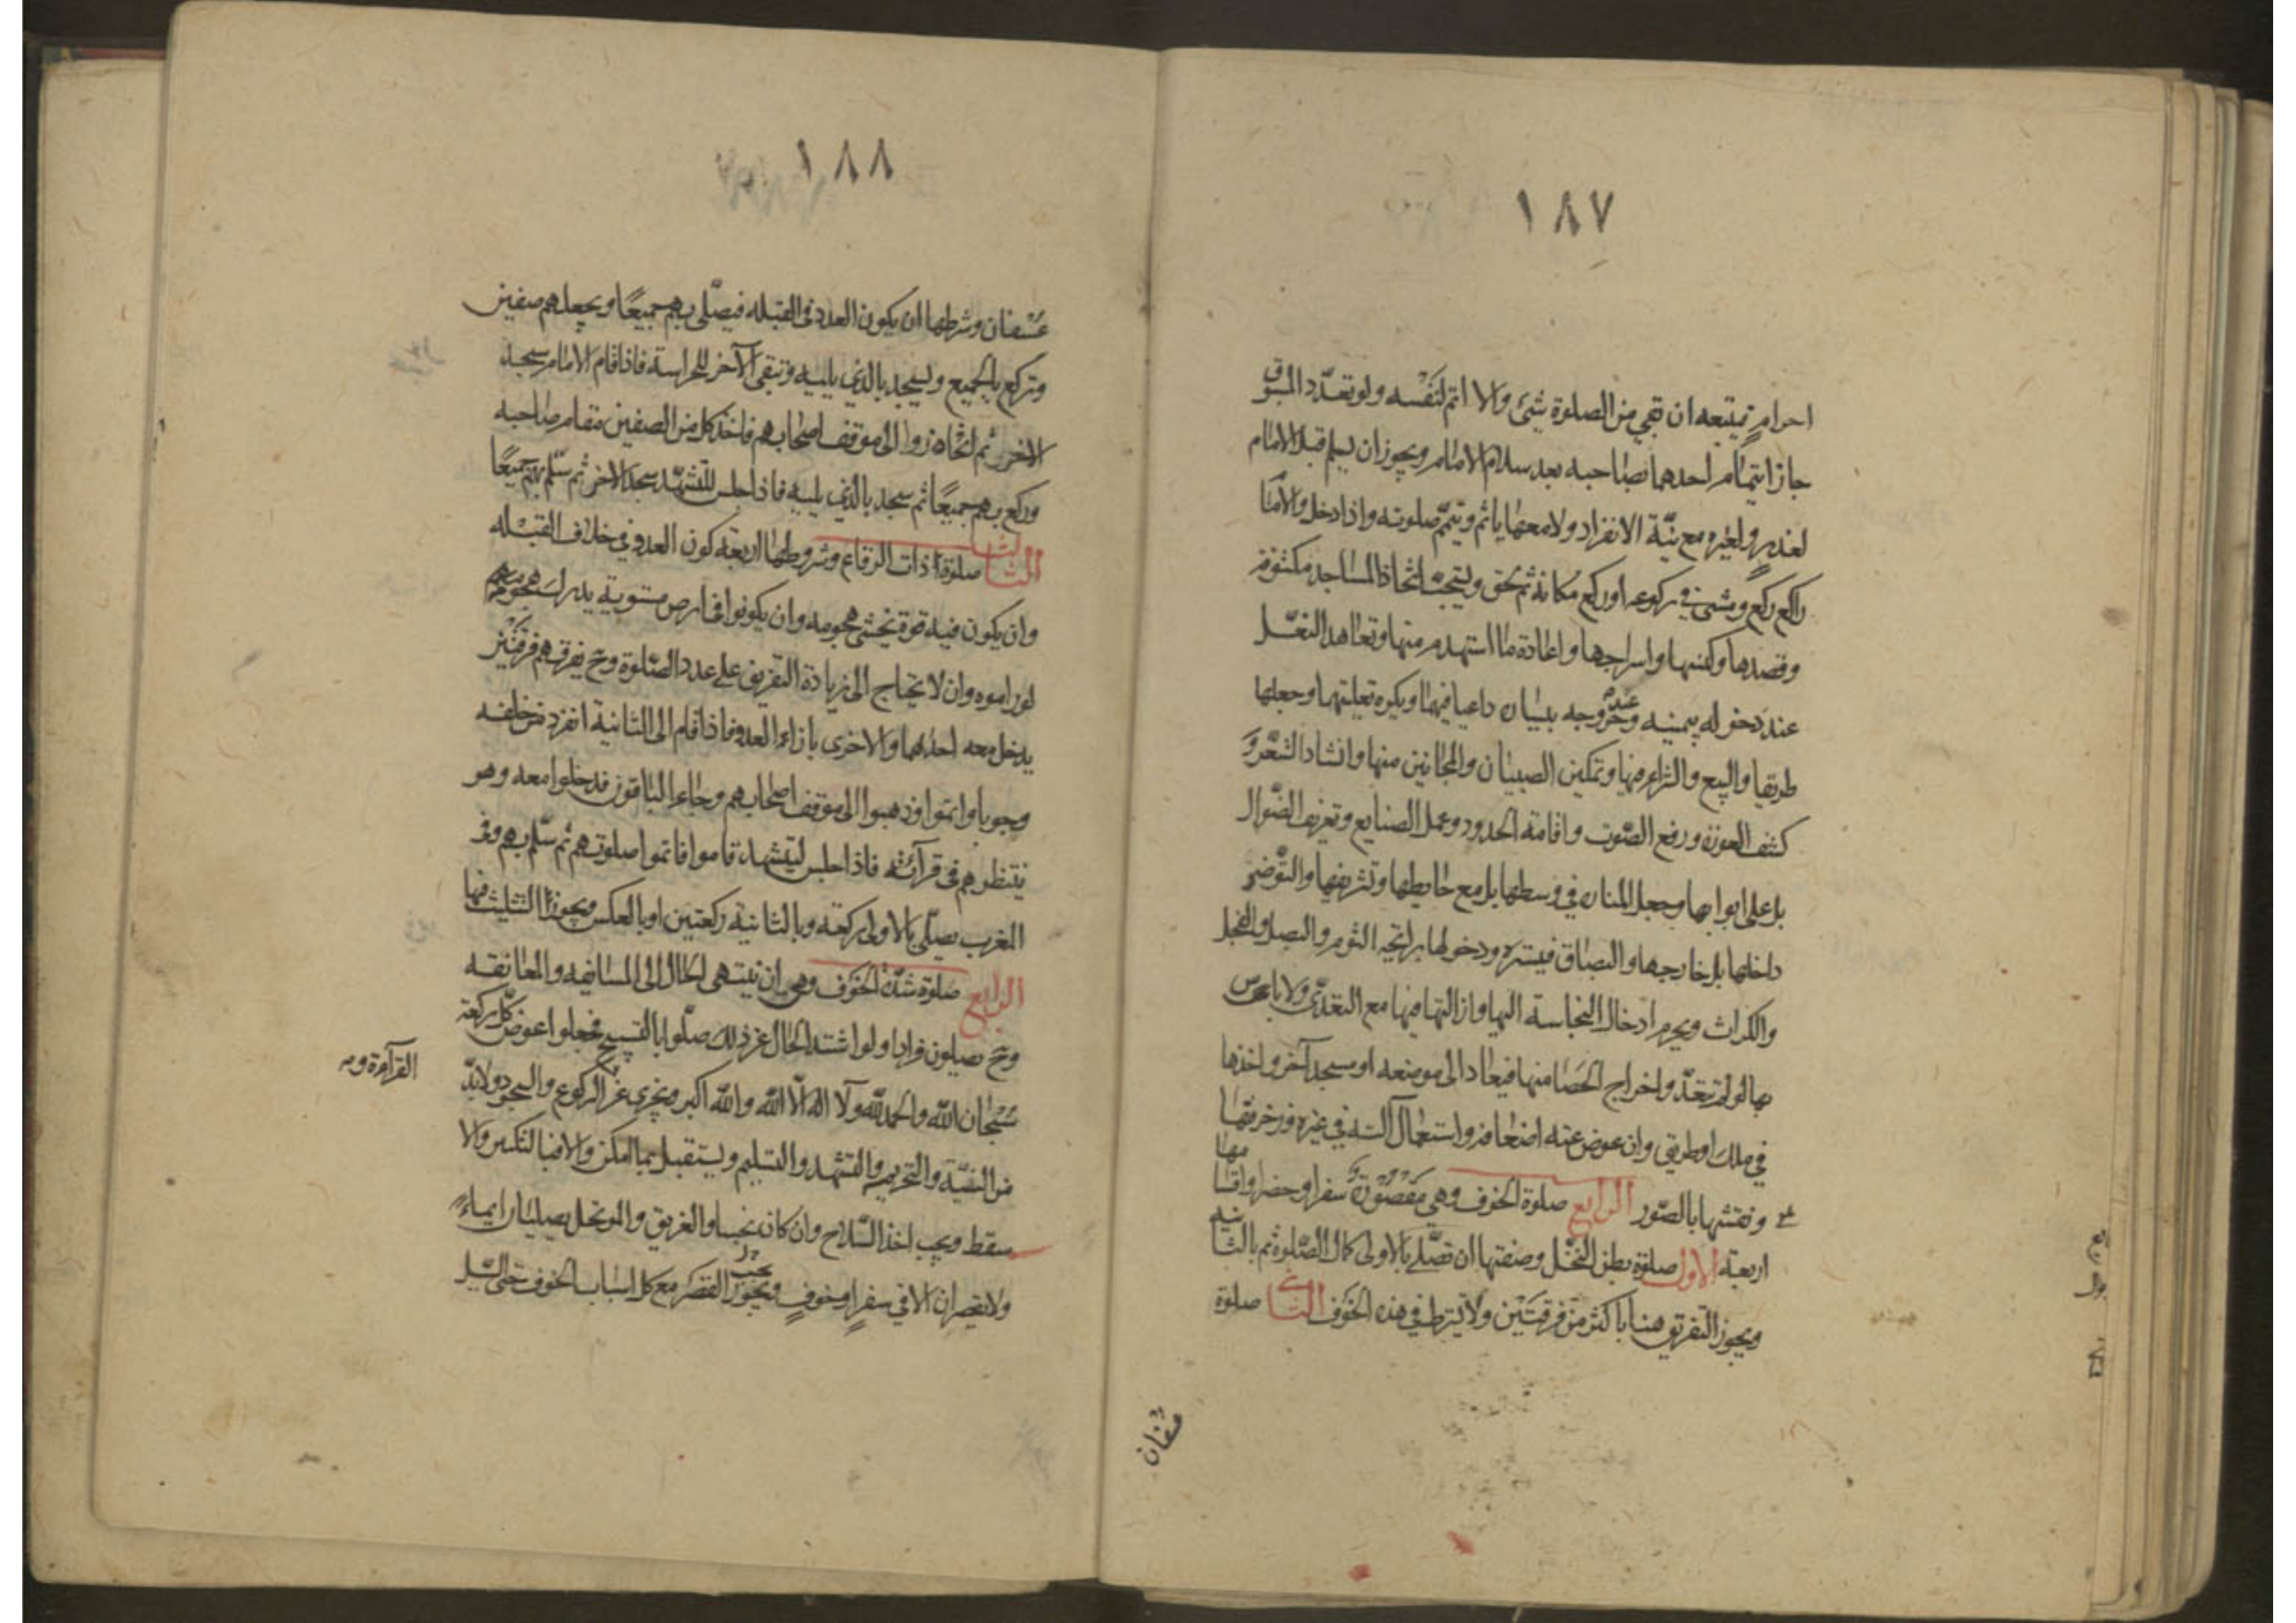 ١٨٧
احرام تميتبعه ان بقي من الصلوة شئ والا اتم لنفسه ولو تعدّد المسبوق
جاز ايتمام احدهما بصاحبه بعد سلام الامام ويجوز ان يسلم قبل الامام
لعذر ولغيره مع نيّة الانفراد ولا معها ياثم وتيمّ صلوته واذا دخل والامام
راكع ركع ومشى في ركوعه او ركع مكانه ثم لحق ويستحبّ اتخاذ المساجد مكشوفة
وقصدها وكنسها واسراجها واعادة ما استهدم منها وتعاهد النعل
عند دخوله بيمينه وخروجه عند بيساره داعيا فيهما ويكره تعليتها وجعلها
طريقا والبيع والشراء فيها وتمكين الصبيان والمجانين منها وانشاد الشعر و
كشف العورة ورفع الصّوت واقامة الحدود وعمل الصنايع وتعريف الضّوال
بل على ابوابها وجعل المنارة في وسطها بل مع حايطها وتشريفها والتّوضئ
داخلها بل خارجها والبصاق فيستره ودخولها برايحة الثوم والبصل والفجل
والكراث ويحرم ادخال النجاسة اليها وازالتها فيها مع التعدّى ولا باس
بها لو لم تتعدّ واخراج الحصا منها فيعاد الى موضعه او مسجد آخر واخذها
في ملك او طريق وان عوض عنه اضعافه واستعمال آلته في غيره وزخرفتها
ونقشها بالصّور الرابع صلوة الخوف وهي مقصورة سفرا وحضرا واقسامها
اربعة الاول صلوة بطن النخل وصفتها ان تصلّى بالاولى كمال الصّلوة ثم بالثانية
ويجوز التفريق هنا باكثر من فرقتين ولا يشترط في هذه الخوف الثاني صلوة
عُسْفان
١٨٨
عُسْفان وشرطها ان يكون العدو في القبله فيصلّى بهم جميعًا ويجعلهم صفين
وتركع بالجميع ويسجد بالذي يليه وتبقى الآخر للحراسة فاذا قام الامام سجد
الاخر ثم انحازوا الى موقف اصحابهم فاخذ كل من الصفين مقام صاحبه
وركع بهم جميعًا ثم سجد بالذي يليه فاذا جلس للتشهّد سجد الاخر ثم سلّم بهم جميعًا
الثالث صلوة ذات الرقاع وشروطها اربعة كون العدو في خلاف القبله
وان يكون فيه قوة يخشى هجومه وان يكونوا في ارض مستوية يدرك هجومهم
لو راموه وان لا يحتاج الى زيادة التفريق على عدد الصّلوة وح يفرقهم فرقتين
يدخل معه احدهما والاخرى بازاء العدو فاذا قام الى الثانية انفرد من خلفه
وجوبا واتموا وذهبوا الى موقف اصحابهم وجاء الباقون فدخلوا معه وهو
ينتظرهم في قرآئته فاذا جلس ليتشهد قاموا فاتموا صلوتهم ثم سلّم بهم وفى
المغرب يصلّى بالاولى ركعة وبالثانية ركعتين او بالعكس ويجوز التثليث فيها
الرابع صلوة شدّة الخوف وهي ان ينتهى الحال الى المسايفه والمعانقه
وح يصلون فرادا ولو اشتد الحال عن ذلك صلّوا بالتسبيح فجعلوا عوض كل ركعة
سُبحان اللّه والحمد للّه ولا اله الّا اللّه واللّه اكبر ويجزى عن الركوع والسجود ولا بدّ
القرآءة و
من النيّة والتحريم والتشهد والتسليم ويستقبل بما امكن والا فبالتكبير والا
سقط ويجب اخذ السّلاح وان كان نجسا والغريق والموتحل يصليان ايماءً
ولا يقصران الا في سفرٍ او خوفٍ ويجوز القصر مع كل اسباب الخوف حتى السّيل